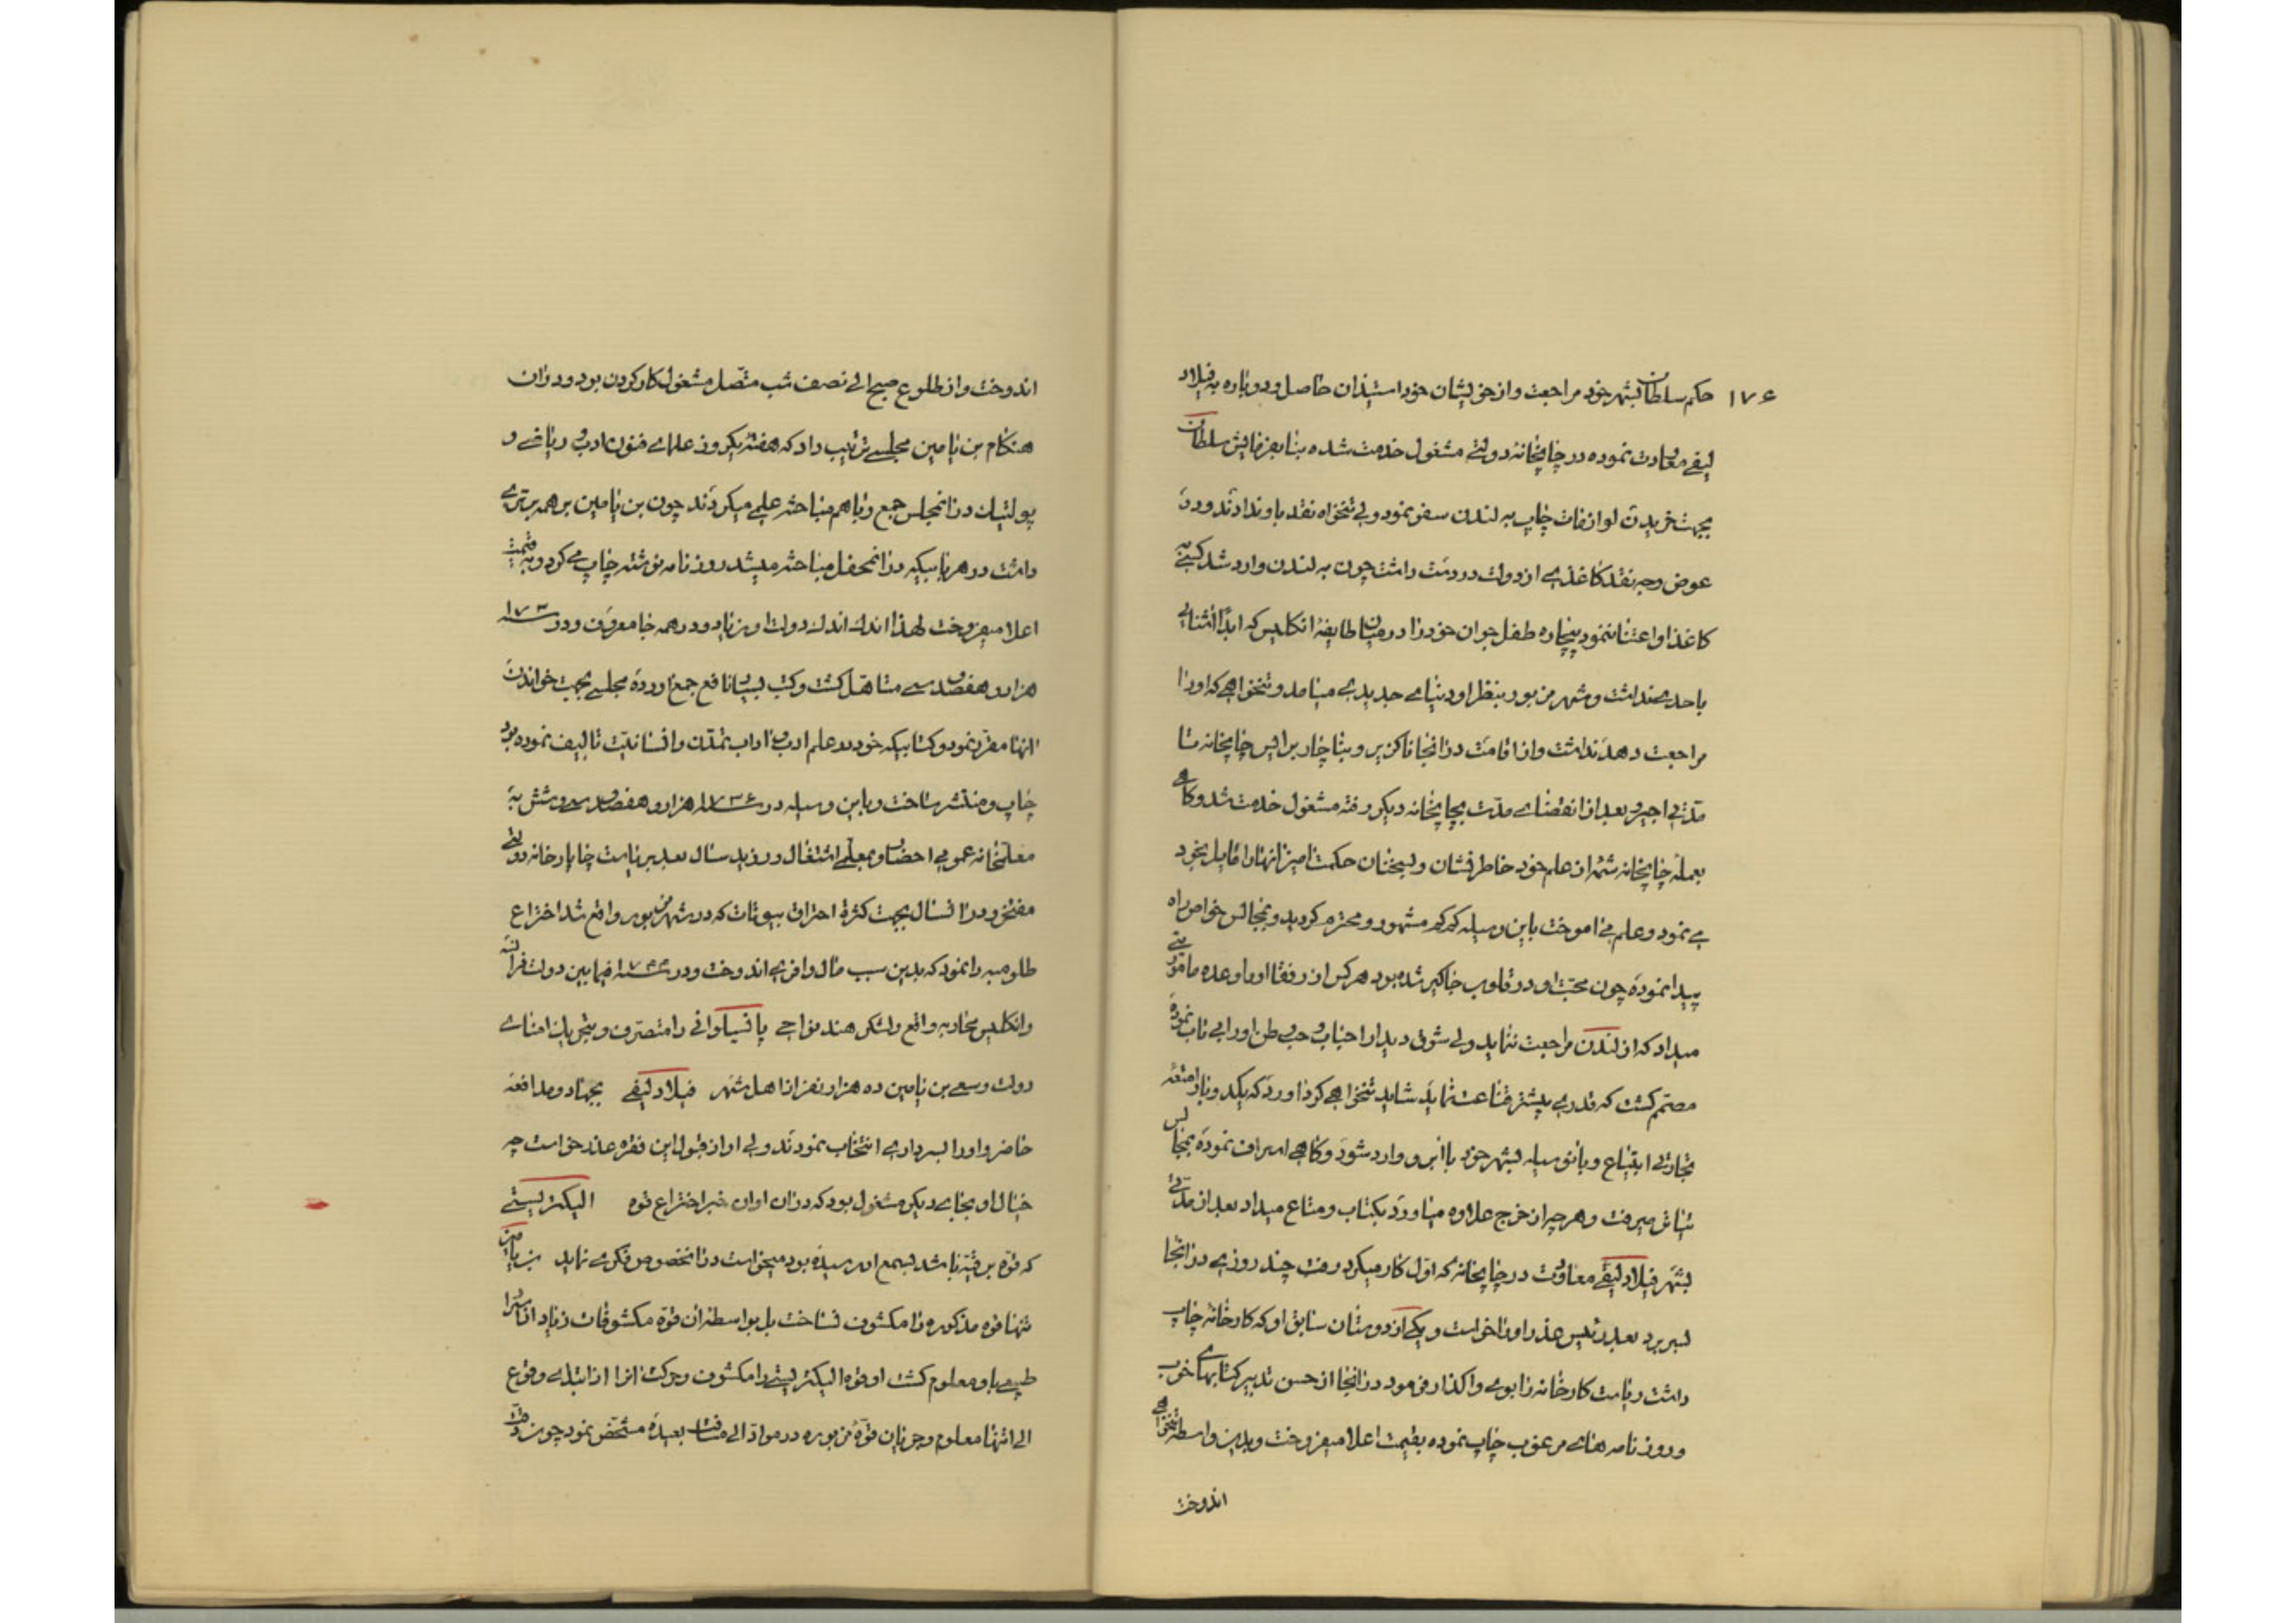 ۱۷۶ حکم سلطان بشهر خود مراجعت و از خویشان خود استیذان حاصل و دوباره به فیلاد
لیفی معاودت نموده در چاپخانه دولتی مشغول خدمت شده بنا بفرمایش سلطان
بجهت خریدن لوازمات چاپ به لندن سفر نمود ولی تنخواه نقد باو ندادند و در
عوض وجه نقد کاغذی از دولت در دست داشت چون به لندن وارد شد کسی به
کاغذ او اعتنا ننمود بیچاره طفل جوان خود را در میان طایفهٔ انکلیس که ابداً اشنائی
باحدی نداشت و شهر مزبور بنظر او دنیای جدیدی میامد و تنخواهی که او را
مراجعت دهد نداشت و از اقامت در انجا ناکزیر و بناچار برئیس چاپخانه تا
مدتی اجیر و بعد از انقضای مدت بچاپخانه دیکر رفته مشغول خدمت شد و کاهی
بعملهٔ چاپخانه شمهٔ از علم خود خاطر نشان و بسخنان حکمت امیز انها را مایل بخود
می نمود و علم می اموخت باین وسیله کم کم مشهور و محترم کردید و بمجالس خواص راه
پیدا نموده چون محبت او در قلوب جاکیر شده بود هر کس از رفقا او را وعده ماموریتی
میداد که از لندن مراجعت ننماید ولی شوق دیدار احباب و حب وطن او را بی تاب نموده
مصمم کشت که قدری بیشتر قناعت نماید شاید تنخواهی کرد اورد که بلد و باز امتعه
تجارتی ابتیاع و باین وسیله بشهر خود با ابرو وارد شود و کاهی اسراف نموده بمجالس
تیاتر میرفت و هر چه از خرج علاوه میاورد بکتاب و متاع میداد بعد از مدتی
بشهر فیلادلیفی معاودت در چاپخانه که اول کار میکرد رفت چند روزی در انجا
بسر برد بعد رئیس عذر او را خواست و یکی از دوستان سابق او که کارخانهٔ چاپ
داشت ریاست کارخانه را بوی واکذار فرمود در انجا از حسن تدبیر کتابهای خوب
و روزنامه های مرغوب چاپ نموده بقیمت اعلا میفروخت و بدین واسطه تنخواهی
اندوخت
اندوخت و از طلوع صبح الی نصف شب متصل مشغول کار کردن بود و در ان
هنکام بن یامین مجلسی ترتیب داد که هفتهٔ یکروز علمای فنون ادب و ریاضی و
پولتیک در انمجلس جمع و با هم مباحثه علمی میکردند چون بن یامین بر همه برتری
داشت در هر بابیکه در انمحفل مباحثه میشد روزنامه نوشته چاپ می کرد و به قیمت
اعلا میفروخت لهذا اندک اندک دولت او زیاد و در همه جا معروف و در سنه ۱۷۳۰
هزار و هفصد و سی متاهل کشت و کتب بسیار نافع جمع اورده مجلسی بجهت خواندن
انها مقرر نمود و کتابیکه خود در علم ادب و اداب تمدن و انسانیت تالیف نموده بود
چاپ و منتشر ساخت و باین وسیله در سنه ۱۷۳۶ هزار و هفصد و سی و شش به
معلمخانه عمومی احضار و بمعلمی اشتغال ورزید سال بعد بریاست چاپارخانه دولتی
مفتخر و در انسال بجهت کثرة احتراق بیوتات که در شهر مزبور واقع شد اختراع
طلومبه را نمود که بدین سبب مال وافری اندوخت و در سنه ۱۷۴۴ فیمابین دولت فرانسه
و انکلیس محاربه واقع و لشکر هند نواحی پانسیلوانی را متصرف و بتحریک امنای
دولت و سعی بن یامین ده هزار نفر از اهل شهر فیلادلیفی بجهاد و مدافعه
حاضر و او را بسرداری انتخاب نمودند ولی او از قبول این فقره عذر خواست چه
خیال او بجای دیکر مشغول بود که در ان اوان خبر اختراع قوه الیکتریستی
که قوه برقیه باشد بسمع او رسیده بود میخواست در انخصوص فکری نماید بن یامین
تنها قوه مذکوره را مکشوف نساخت بل بواسطه ان قوه مکشوفات زیاد از اسرار
طبیعی باو معلوم کشت او قوه الیکتریستی را مکشوف و حرکت انرا از ابتدای وقوع
الی انتها معلوم و جریان قوهٔ مزبوره در مواد الی مسافت بعیده مشخص نمود چون دقت